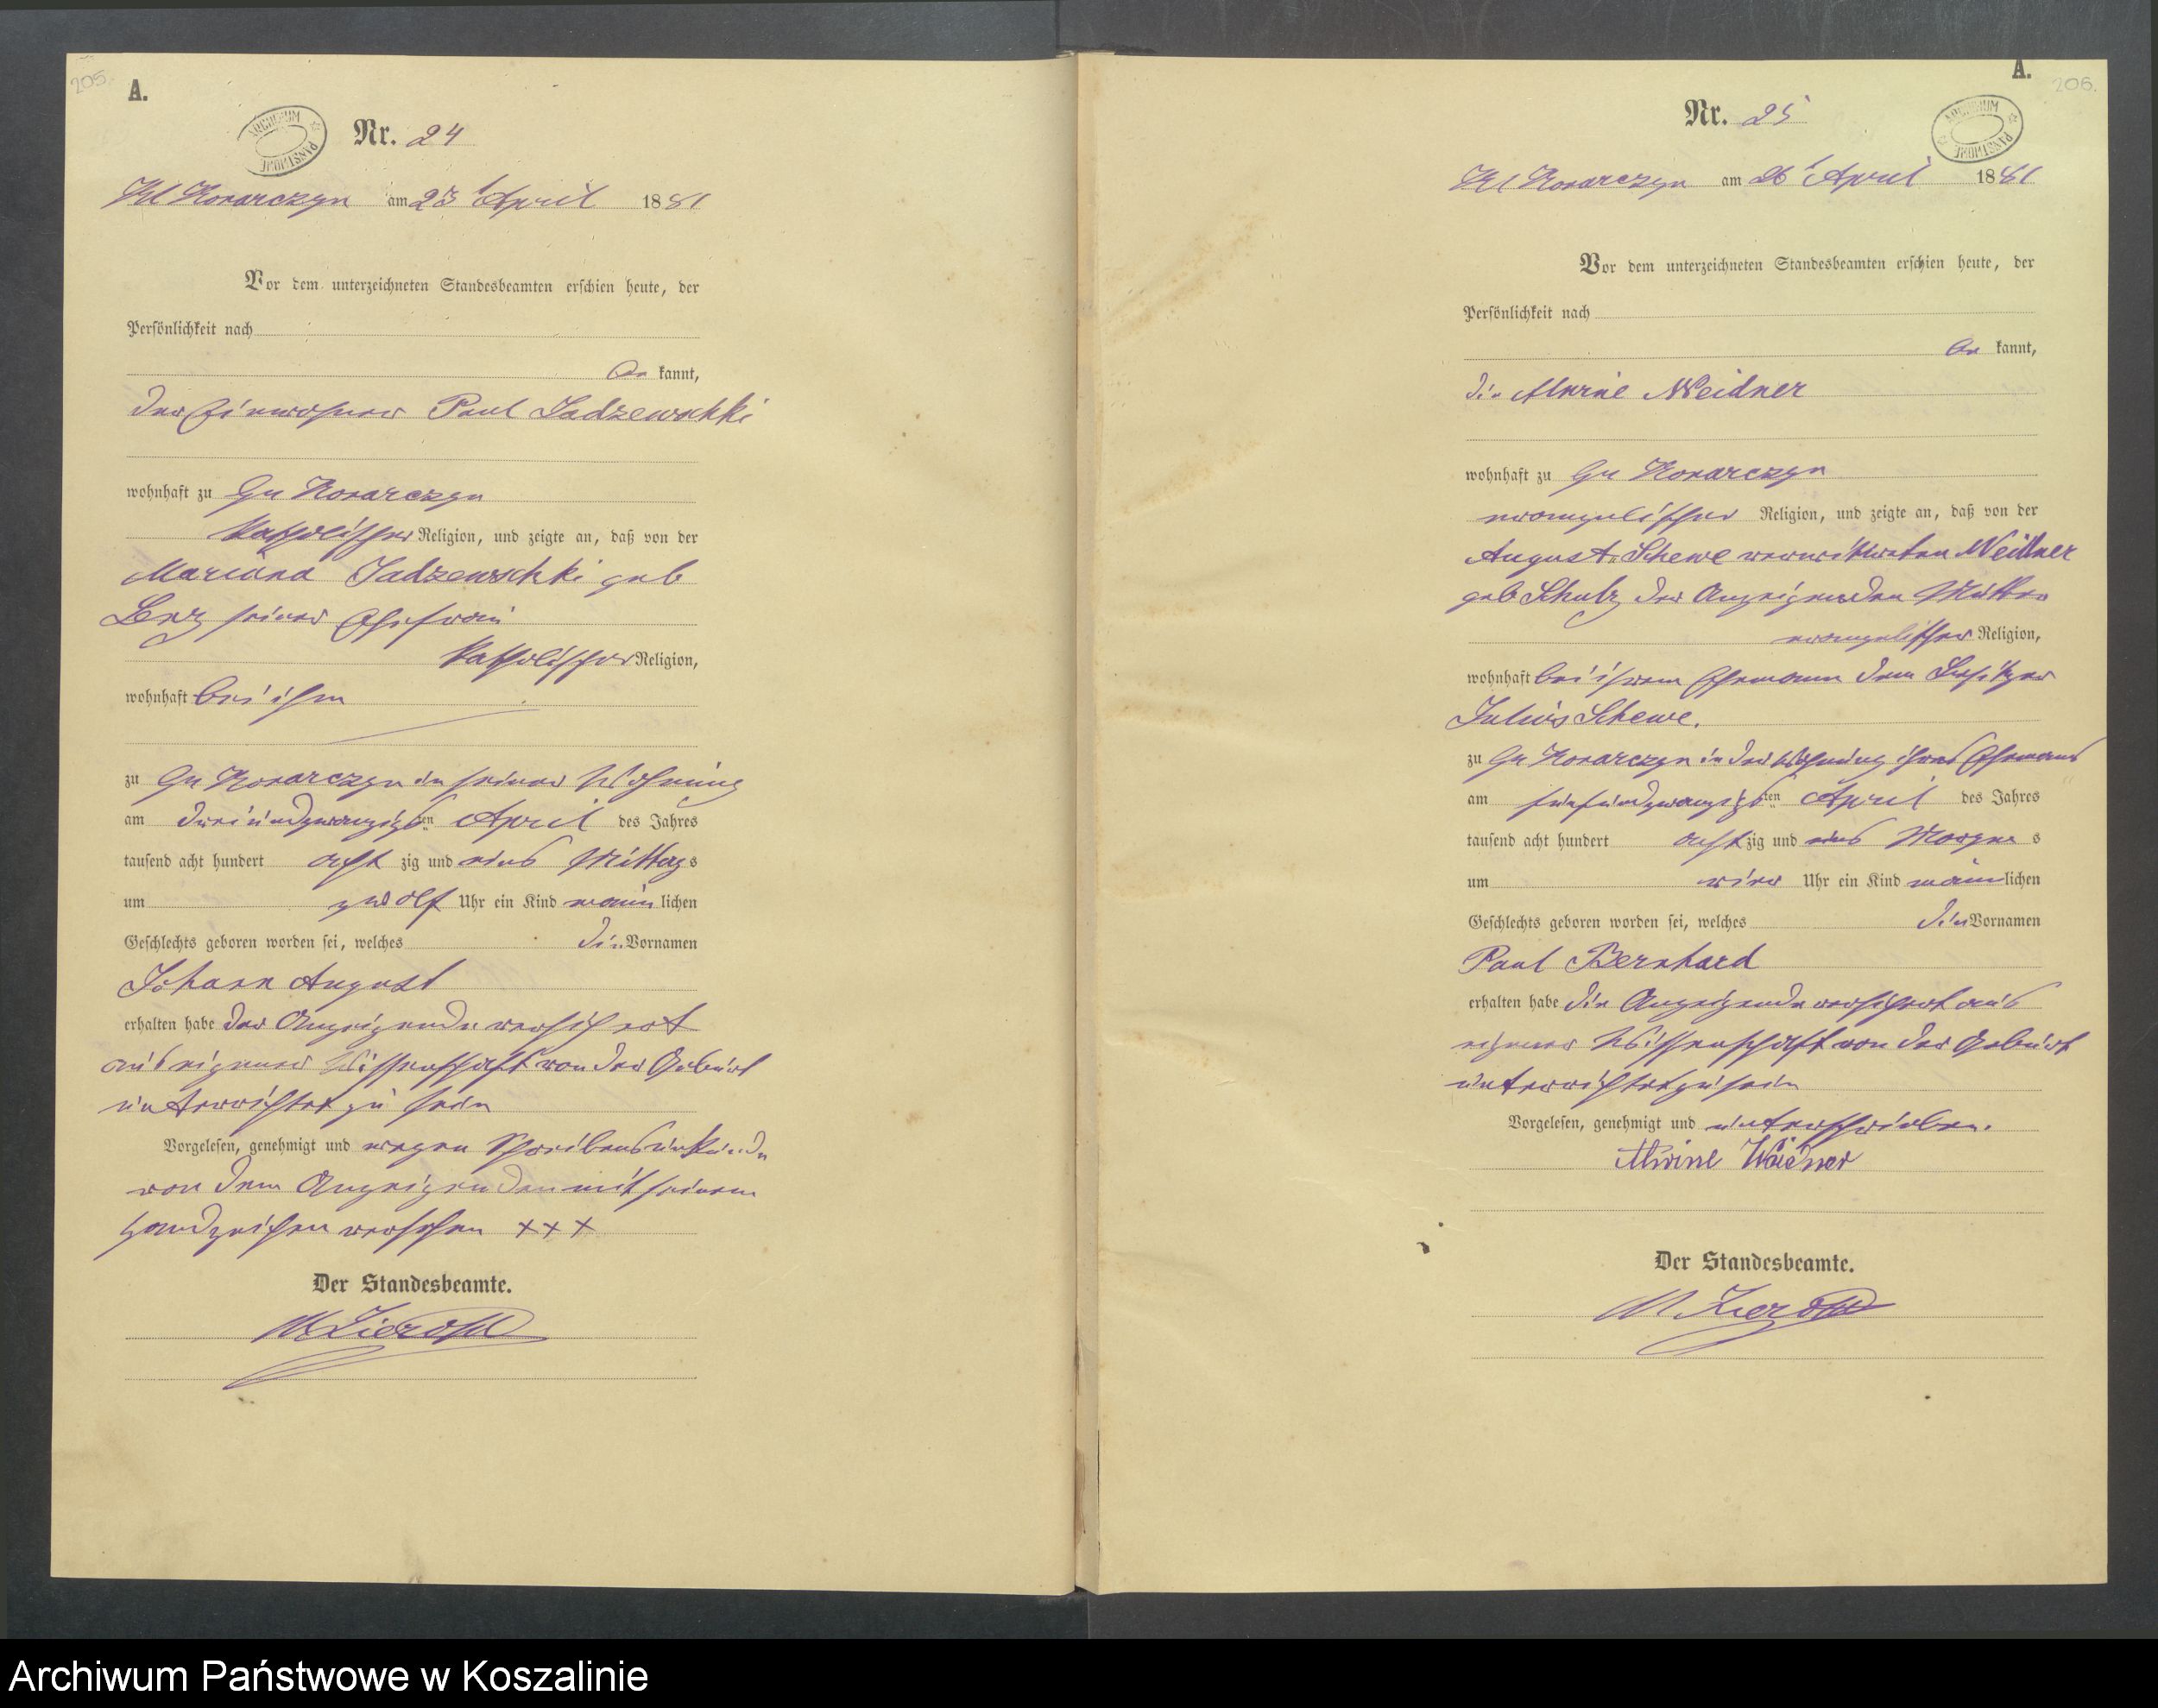 205.
A.
ARCHIWUM PAŃSTWOWE
Nr. 24
Kl Konarczyn am 23 April 1881
Vor dem unterzeichneten Standesbeamten erschien heute, der
Persönlichkeit nach
be kannt,
der Einwohner Paul Jadzewschki
wohnhaft zu Gr Konarczyn
katholischer Religion, und zeigte an, daß von der
Mariana Jadzewschki geb
Lenz seiner Ehefrau
katholischer Religion,
wohnhaft bei ihm
zu Gr Konarczyn in seiner Wohnung
am dreiundzwanzigsten April des Jahres
tausend acht hundert acht zig und eins Mittags
um zwölf Uhr ein Kind männ lichen
Geschlechts geboren worden sei, welches die Vornamen
Johann August
erhalten habe der Anzeigende versichert
aus eigener Wissenschaft von der Geburt
unterrichtet zu sein
Vorgelesen, genehmigt und wegen Schreibensunkunde
von dem Anzeigenden mit seinem
Handzeichen versehen +++
Der Standesbeamte.
206.
A.
ARCHIWUM PAŃSTWOWE
Nr. 25
Kl Konarczyn am 26 April 1881
Vor dem unterzeichneten Standesbeamten erschien heute, der
Persönlichkeit nach
be kannt,
die Alwine Weidner
wohnhaft zu Gr Konarczyn
evangelischer Religion, und zeigte an, daß von der
August. Schewe verwittweten Weidner
geb Schulz der Anzeigenden Mutter
evangelischer Religion,
wohnhaft bei ihrem Ehemann dem Besitzer
Julius Schewe.
zu Gr Konarczyn in der Wohnung ihres Ehemans
am fünfundzwanzigsten April des Jahres
tausend acht hundert acht zig und eins Morgen s
um vier Uhr ein Kind männ lichen
Geschlechts geboren worden sei, welches die Vornamen
Paul Bernhard
erhalten habe die Anzeigende versichert aus
eigener Wissenschaft von der Geburt
unterrichtet zu sein
Vorgelesen, genehmigt und unterschrieben.
Alwine Weidner
Der Standesbeamte.
Archiwum Państwowe w Koszalinie